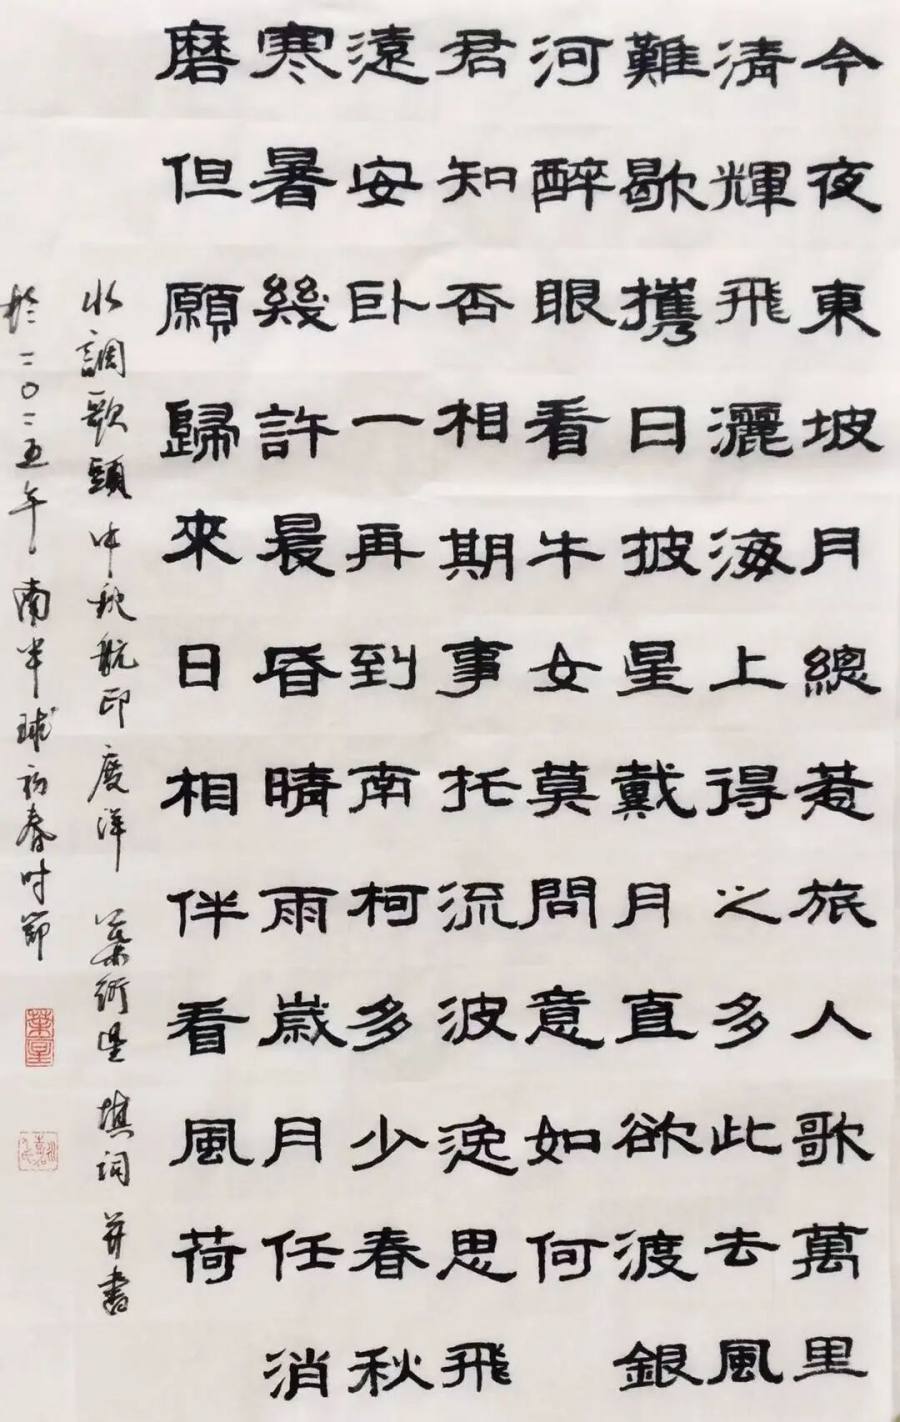 今夜東坡月總惹旅人歌萬里
清輝飛灑海上得之多此去風
難歇攜日披星戴月直欲渡銀
河醉眼看牛女莫問意如何
君知否相期事托流波逸思飛
遠安卧一再到南柯多少春秋
寒暑幾許晨昏晴雨歲月任消
磨但願歸來日相伴看風荷
水調歌頭中秋航印度洋 葉衍堂 填詞并書
於二〇二五年南半球初春时節
葉堂